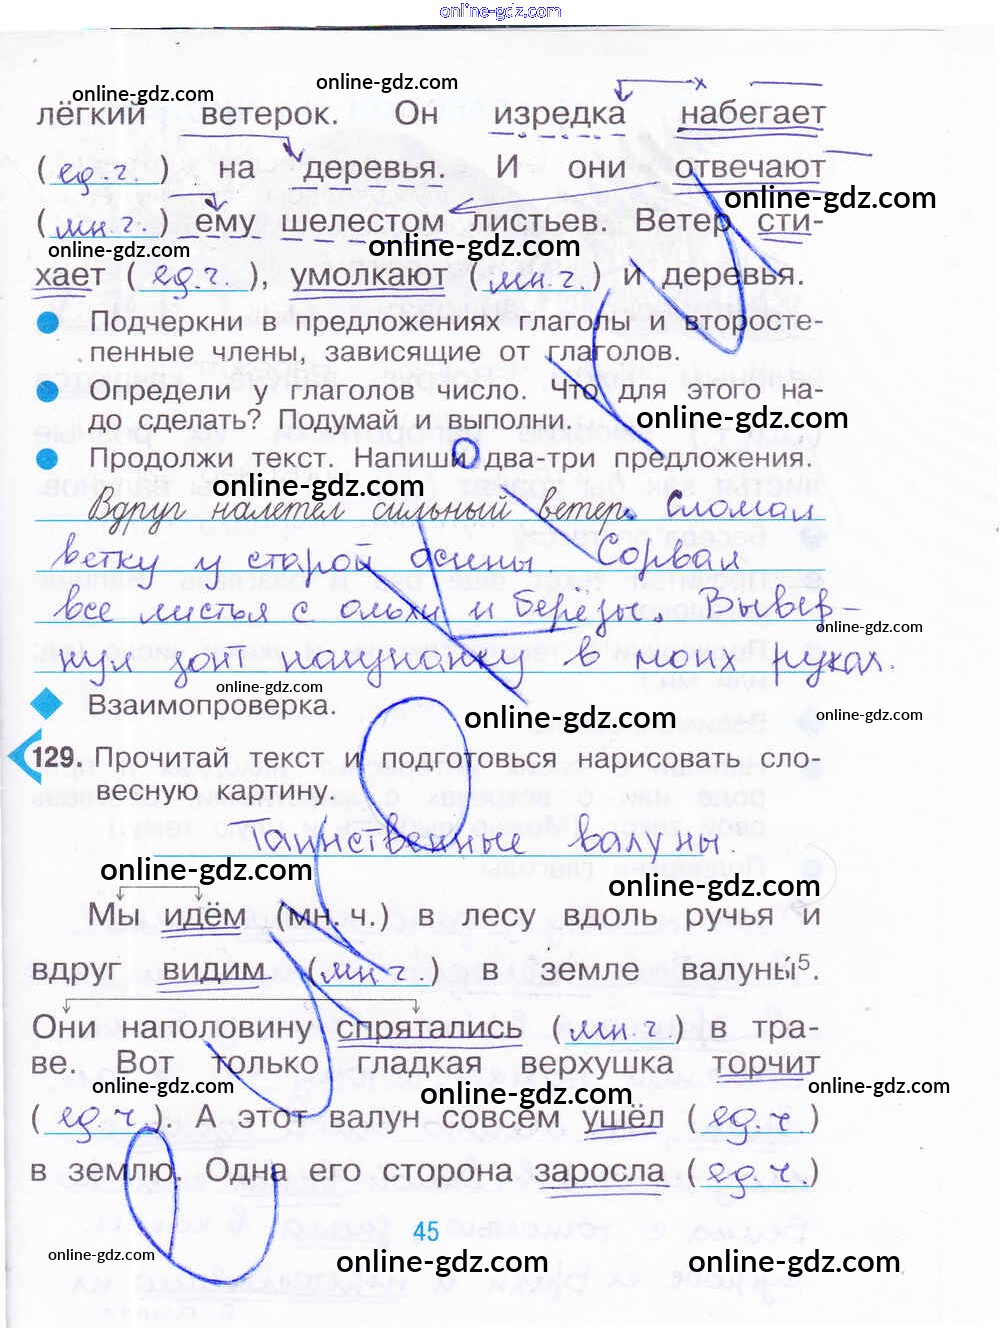 online-gdz.com
online-gdz.com online-gdz.com
лёгкий ветерок. Он изредка набегает
(ед.ч.) на деревья. И они отвечают
online-gdz.com
(мн.ч.) ему шелестом листьев. Ветер сти-
online-gdz.com online-gdz.com
хает (ед.ч.), умолкают (мн.ч.) и деревья.
Подчеркни в предложениях глаголы и второсте-
пенные члены, зависящие от глаголов.
Определи у глаголов число. Что для этого на-
до сделать? Подумай и выполни.
online-gdz.com
Продолжи текст. Напиши два-три предложения.
online-gdz.com
Вдруг налетел сильный ветер. Сломал
ветку у старой осины. Сорвал
все листья с ольхи и берёзы. Вывер-
online-gdz.com
нул зонт наизнанку в моих руках.
online-gdz.com
Взаимопроверка.
online-gdz.com online-gdz.com
129. Прочитай текст и подготовься нарисовать сло-
весную картину.
Таинственные валуны.
online-gdz.com online-gdz.com
Мы идём (мн. ч.) в лесу вдоль ручья и
вдруг видим (мн.ч.) в земле валуны⁵.
Они наполовину спрятались (мн.ч.) в тра-
ве. Вот только гладкая верхушка торчит
online-gdz.com online-gdz.com online-gdz.com
(ед.ч.). А этот валун совсем ушёл (ед.ч.)
в землю. Одна его сторона заросла (ед.ч.)
45
online-gdz.com online-gdz.com online-gdz.com